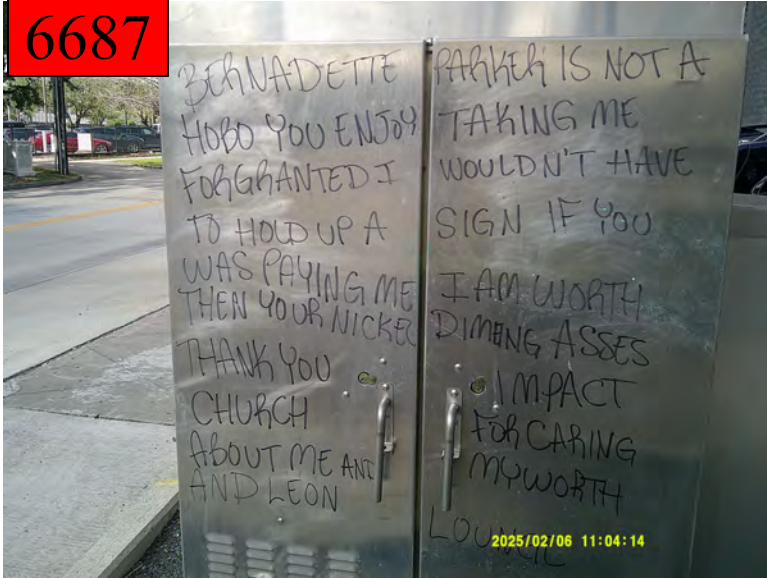 6687
BERNADETTE PARKER IS NOT A
HOBO YOU ENJOY TAKING ME
FORGRANTED I WOULDN'T HAVE
TO HOLD UP A SIGN IF YOU
WAS PAYING ME I AM WORTH
THEN YOUR NICKEL DIMENG ASSES
THANK YOU IMPACT
CHURCH FOR CARING
ABOUT ME AND MY WORTH
AND LEON
2025/02/06 11:04:14